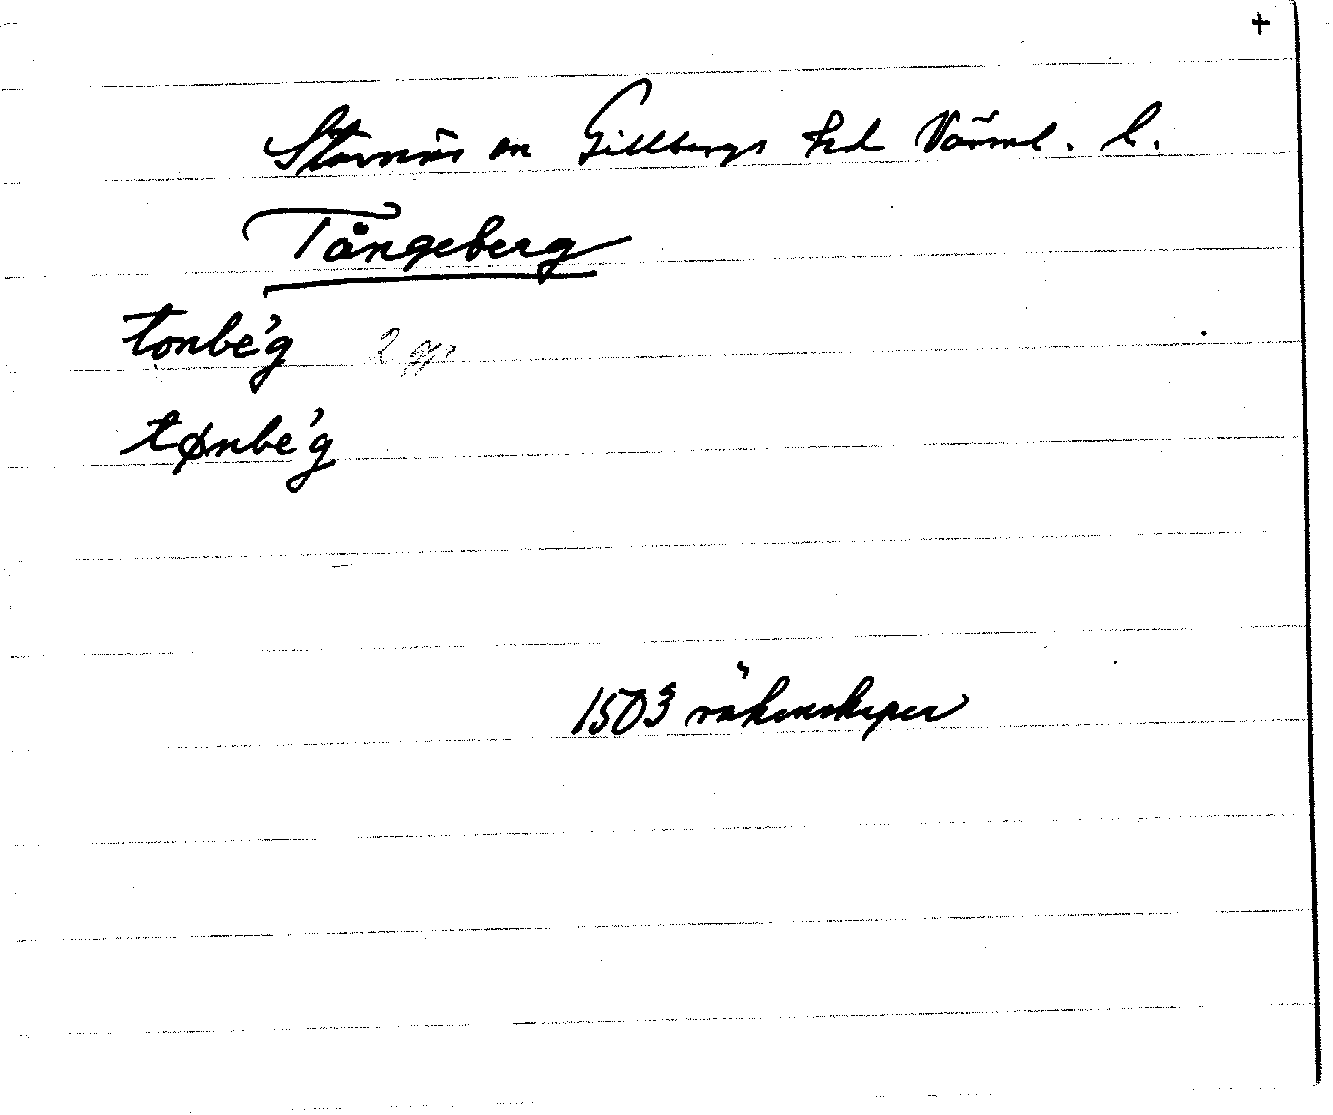 +
Stavnäs sn Gillbergs hd Värml. l.
Tångeberg
tonbe´g 2 ggr
tønbe´g
1503 räkenskaper